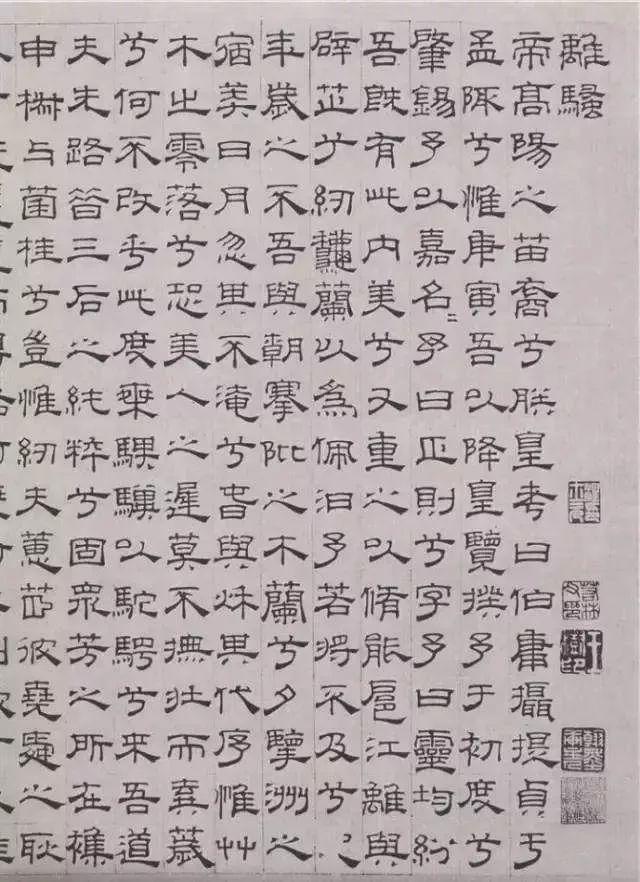 離騷
帝高陽之苗裔兮朕皇考曰伯庸攝提貞于
孟陬兮惟庚寅吾以降皇覽揆予于初度兮
肇錫予以嘉名予曰正則兮字予曰靈均紛
吾既有此内美兮又重之以脩能扈江離與
辟芷兮紉龝蘭以為佩汩予若將不及兮
年歲之不吾與朝搴阰之木蘭兮夕擥洲之
宿莽日月忽其不淹兮春與秋其代序惟艸
木之零落兮恐美人之遲莫不撫壯而棄薉
兮何不改乎此度乘騏驥以駝騁兮来吾道
夫先路昔三后之純粹兮固衆芳之所在襍
申椒与菌桂兮豈惟紉夫蕙茝彼堯舜之耿